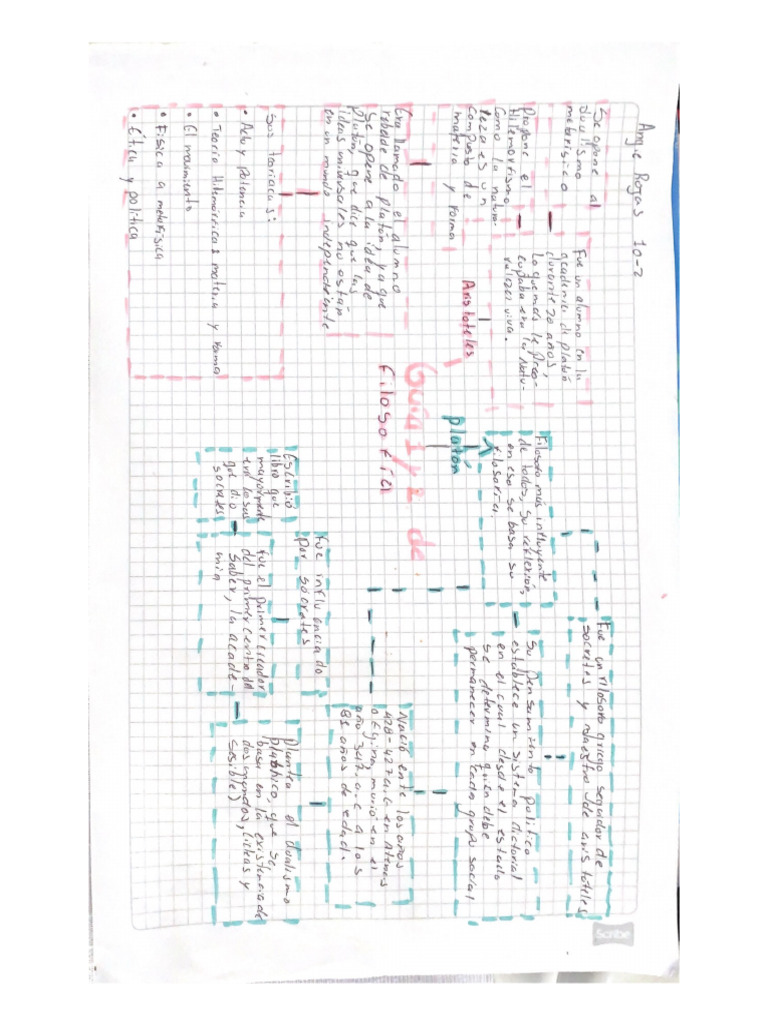 Angie Rojas 10-2
Guia 1 y 2 de
filosofia
Aristoteles
Se opone al
dualismo
metafisico
Fue un alumno en la
academia de platón
durante 20 años,
lo que mas le preo-
cupaba era la natu-
raleza viva.
Propone el
Hilemorfismo
como la natura-
leza es un
compuesto de
materia y forma
Era llamado el alumno
rebelde de platón, ya que
se opone a la idea de
platón, que dice que las
ideas universales no están
en un mundo independiente
Sus teoriacas:
• Acto y potencia
• Teoria Hilemórficas materia y forma
• El movimiento
• Fisica a metafisica
• Ética y politica
platón
Filosofo más influyente
de todos, su reflexión,
en eso se basa su
filosofia.
Fue un filosofo griego seguidor de
socrates y maestro de aristoteles
Su pensamiento politico
establece un sistema dictorial
en el cual desde el estado
se determina quien debe
permanecer en cada grupo social
Nació ente los años
428-427 a.C en Atenas
o Egina, murió en el
año 347 a.c a los
81 años de edad.
Fue influenciado
por socrates
Escribió
libro que
mayormente
era lo
que dijo
socrates
fue el primer creador
del primer centro del
saber, la acade-
mia
plantea el dualismo
platónico, que se
basa en la existencia de
dos mundos, (ideas y
sesible)
Scribe